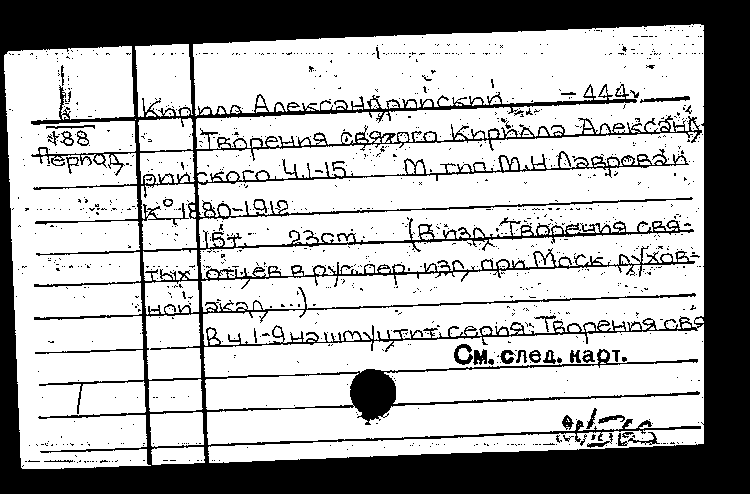 Кирилл Александрийский, -444.
488
Период.
Творения святого Кирилла Александ-
рийского. Ч.1-15. М., тип. М.Н. Лаврова и
К°, 1880-1912
15т. 23cm. (В изд.: Творения свя-
тых отцев в рус. пер., изд. при Моск. духов-
ной акад. ...).
В ч. 1-9 на шмуцтит. серия: Творения свя
См. след. карт.